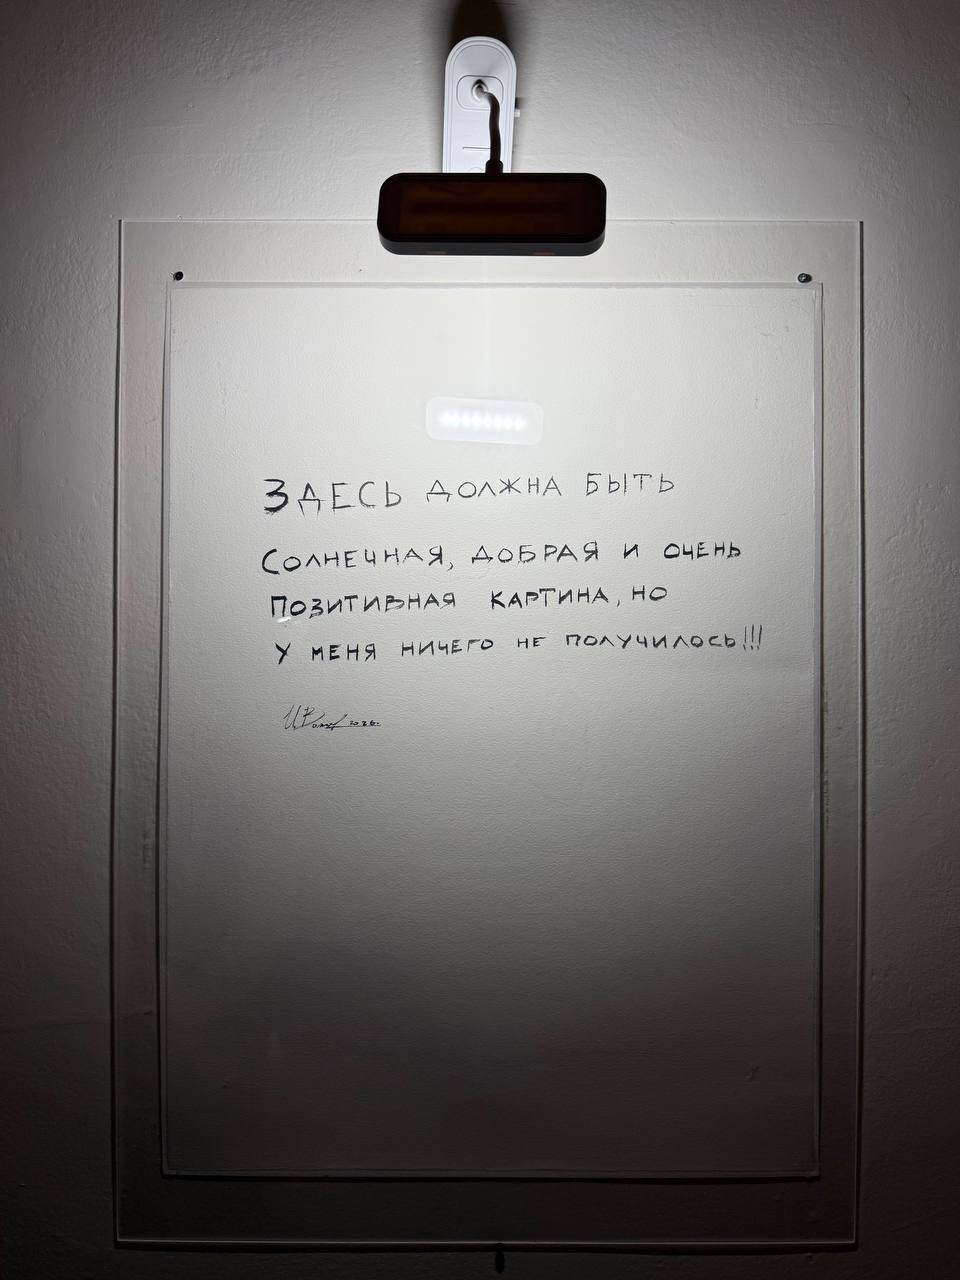 ЗДЕСЬ ДОЛЖНА БЫТЬ
СОЛНЕЧНАЯ, ДОБРАЯ И ОЧЕНЬ
ПОЗИТИВНАЯ КАРТИНА, НО
У МЕНЯ НИЧЕГО НЕ ПОЛУЧИЛОСЬ!!!